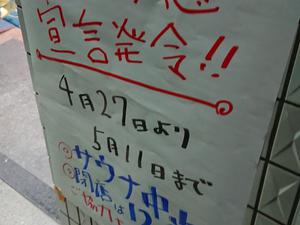 宣言発令!!
4月27日より
5月11日まで
サウナ中止
閉店は12
ご協力